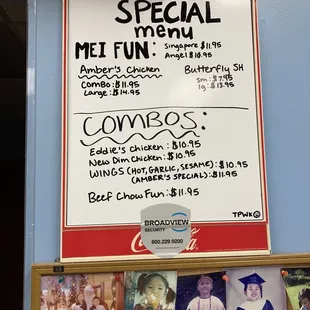 SPECIAL
menu
MEI FUN: Singapore $11.95
Angel $10.95
Amber's Chicken Butterfly SH
Combo: $11.95 sm: $7.95
Large: $14.95 lg: $13.95
COMBOS:
Eddie's Chicken: $10.95
New Dim Chicken: $10.95
WINGS (HOT, GARLIC, SESAME): $10.95
(AMBER'S SPECIAL): $11.95
Beef Chow Fun: $11.95
TPWK ©
BROADVIEW
SECURITY
800.229.9200